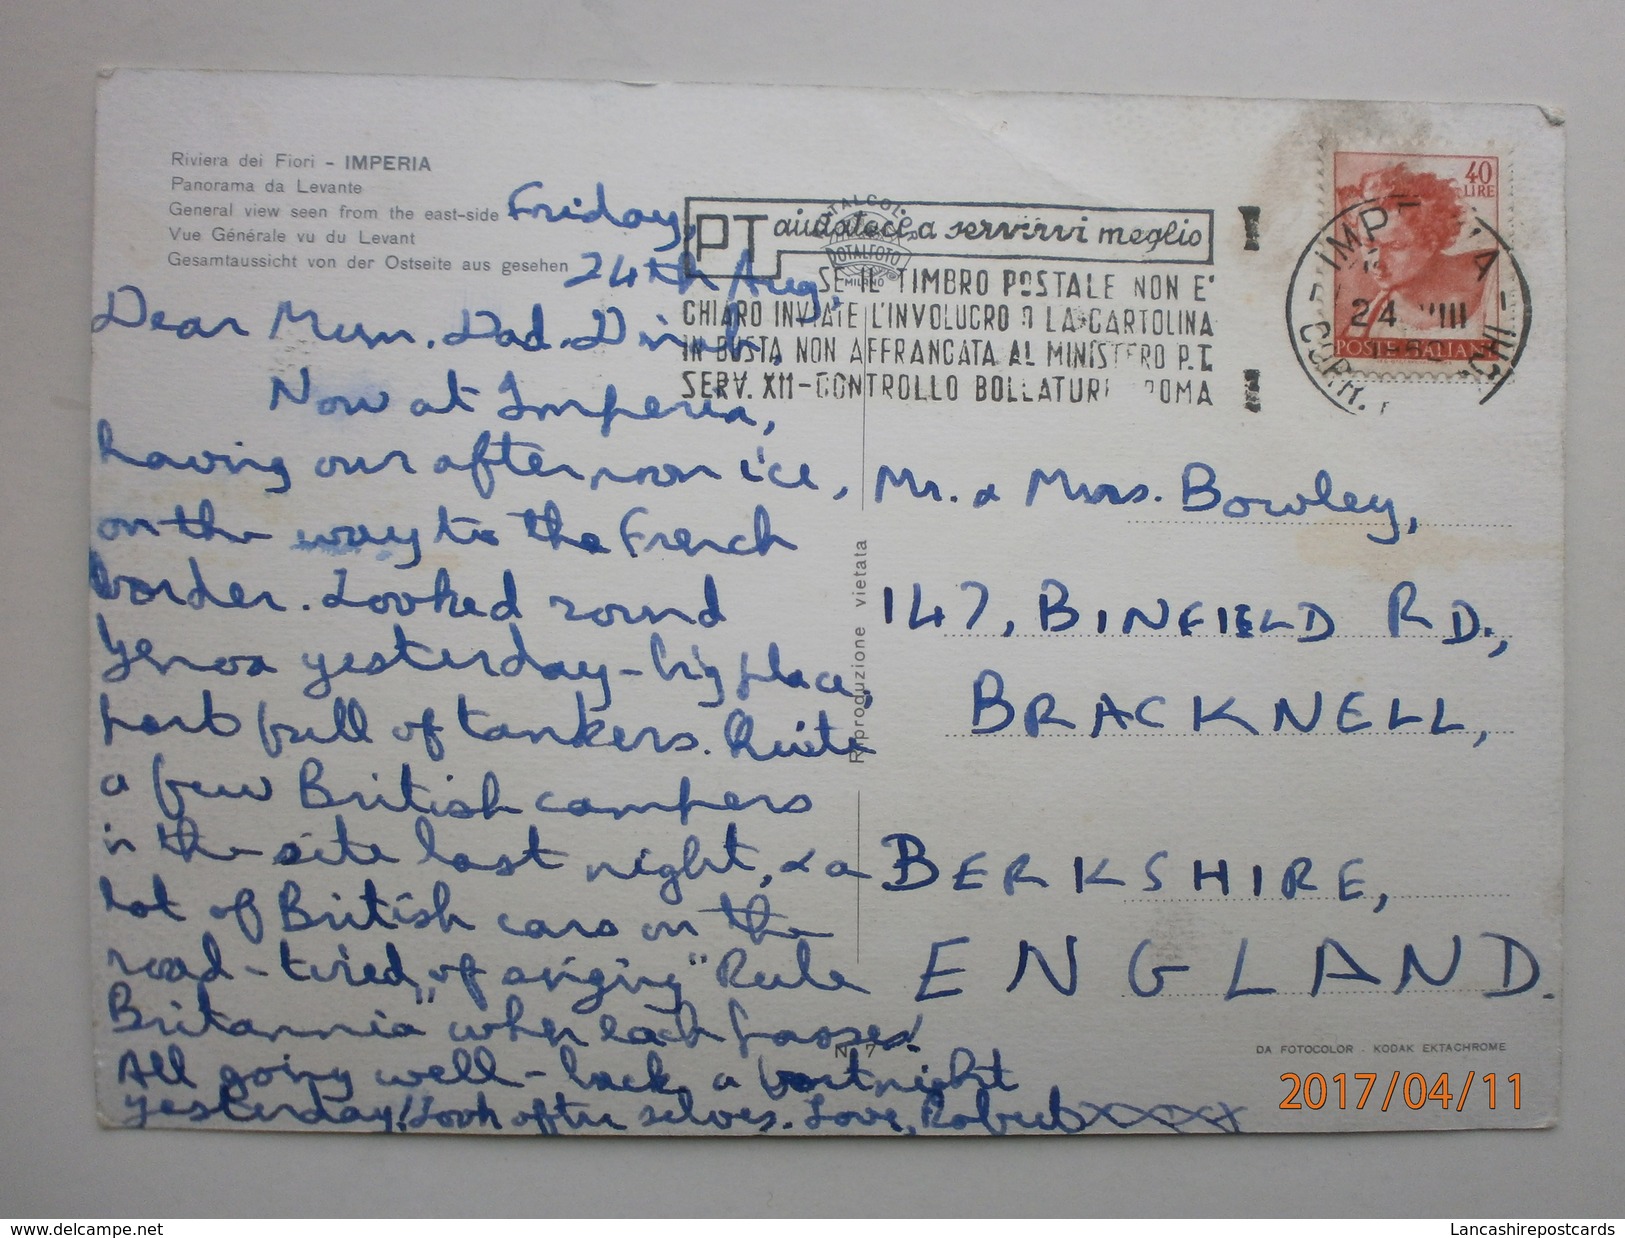 Riviera dei Fiori - IMPERIA
Panorama da Levante
General view seen from the east-side
Vue Générale vu du Levant
Gesamtaussicht von der Ostseite aus gesehen
Friday,
24th Aug,
Dear Mum, Dad, Dinah,
Now at Imperia,
having our afternoon ice,
on the way to the French
border. Looked round
Genoa yesterday - big place,
port full of tankers. Quite
a few British campers
in the site last night, & a
lot of British cars on the
road - tired of singing "Rule
Britannia" when each passes!
All going well - back a fortnight
yesterday! Look after selves. Love, Robert xxxx
PT aiutateci a servirvi meglio
SE IL TIMBRO POSTALE NON E'
CHIARO INVIATE L'INVOLUCRO O LA CARTOLINA
IN BUSTA NON AFFRANCATA AL MINISTERO P.T.
SERV. XII - CONTROLLO BOLLATURE ROMA
TOTALCOLOR
DOTALFOTO
MILANO
40
LIRE
POSTE ITALIANE
IMPERIA
24 VIII
Mr. & Mrs. Bowley,
147, BINFIELD RD.,
BRACKNELL,
BERKSHIRE,
ENGLAND.
Riproduzione vietata
N. 7
DA FOTOCOLOR . KODAK EKTACHROME
2017/04/11
www.delcampe.net
Lancashirepostcards